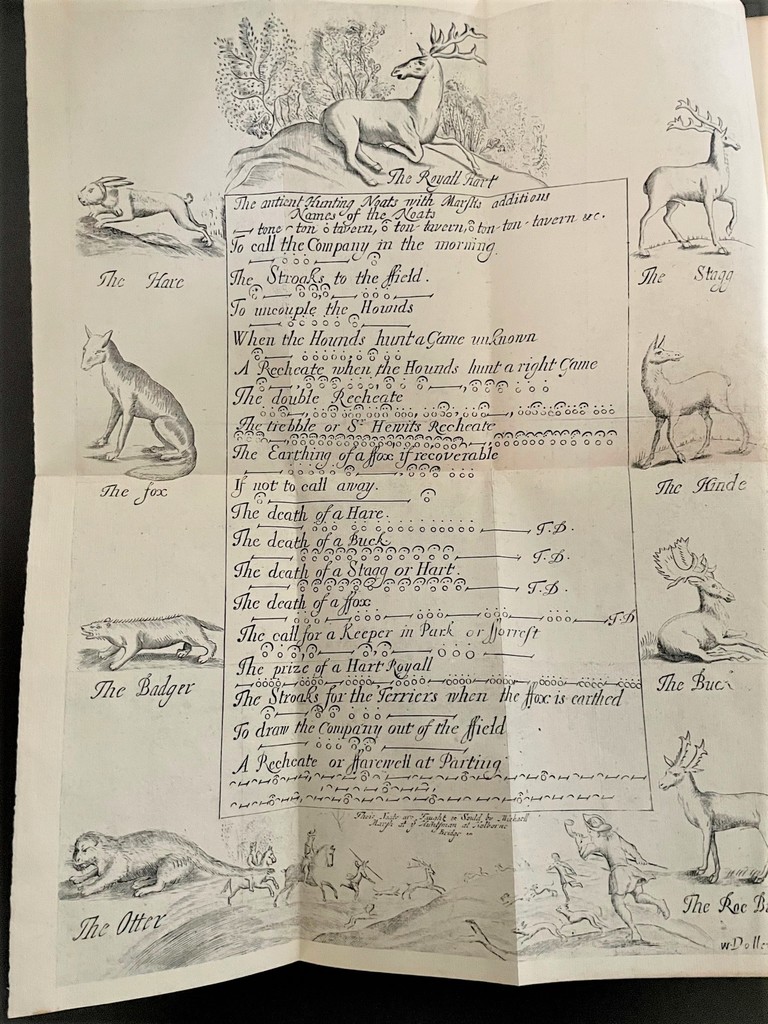 The Royall Hart
The antient Hunting Noats with Marshs additions
Names of the Noats
tone ton tavern, ton-tavern, ton-ton-tavern &c.
To call the Company in the morning.
The Stroaks to the ffield.
To uncouple the Hounds
When the Hounds hunt a Game unknown
A Recheate when the Hounds hunt a right Game
The double Recheate
The trebble or Sr. Hewits Recheate
The Earthing of a ffox if recoverable
If not to call away.
The death of a Hare.
T.D.
The death of a Buck
T.D.
The death of a Stagg or Hart.
T.D.
The death of a ffox
T.D
The call for a Keeper in Park or fforrest
The prize of a Hart Royall
The Stroaks for the Terriers when the ffox is earthed
To draw the Company out of the ffield
A Recheate or ffarewell at Parting
These Noats are Taught or Sould by Michaell
Marsh at ye Huntsman at Holborne
Bridge
The Hare
The fox
The Badger
The Otter
The Stagg
The Hinde
The Buck
The Roe B
W Dolle